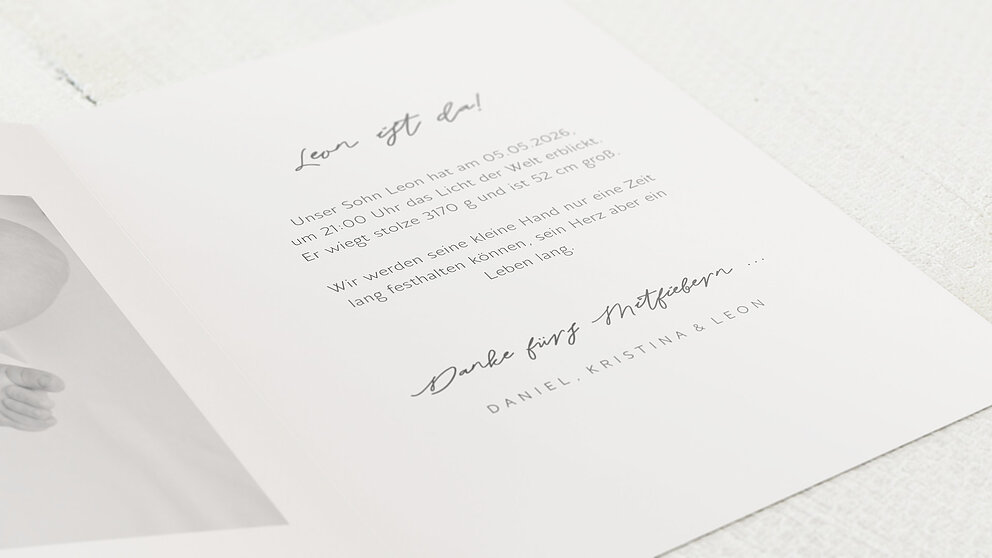 Leon ist da!
Unser Sohn Leon hat am 05.05.2026,
um 21:00 Uhr das Licht der Welt erblickt.
Er wiegt stolze 3170 g und ist 52 cm groß.
Wir werden seine kleine Hand nur eine Zeit
lang festhalten können, sein Herz aber ein
Leben lang.
Danke fürs Mitfiebern ...
DANIEL, KRISTINA & LEON